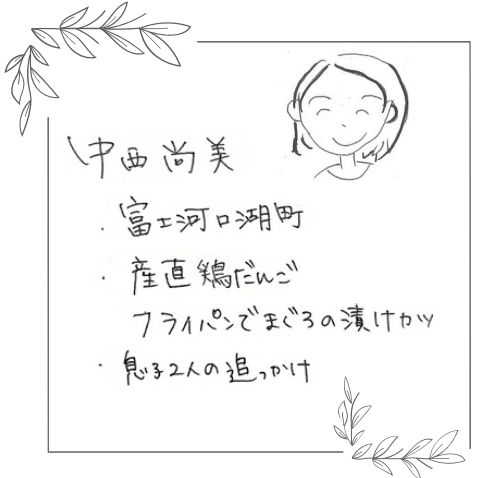 中西尚美
・富士河口湖町
・産直鶏だんご
フライパンでまぐろの漬けカツ
・息子2人の追っかけ